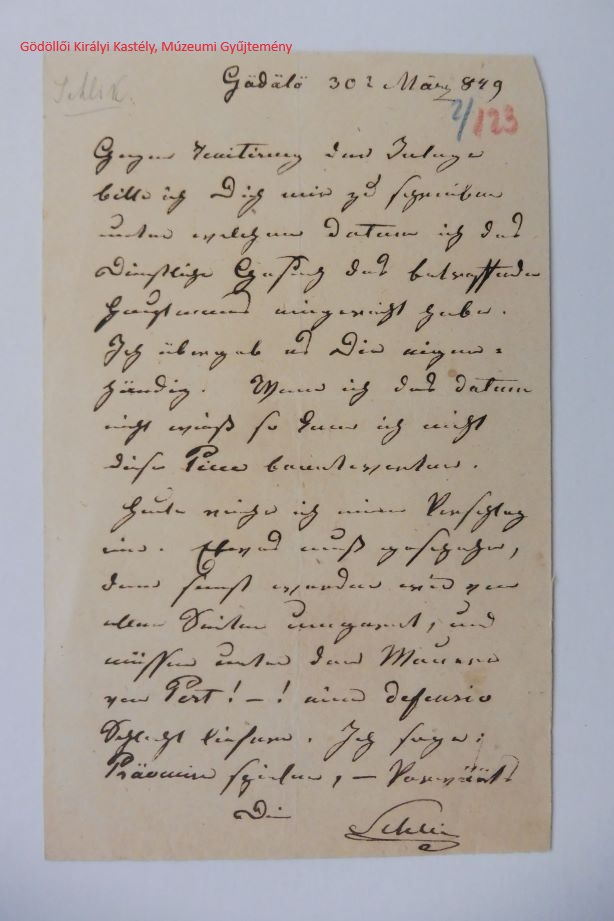 Gödöllői Királyi Kastély, Múzeumi Gyűjtemény
Schlik.
Gödölö 30t März 849
2/123
Gegen Remitirung der Inlage
bitte ich Dich mir zu schreiben
unter welchem datum ich das
Dienstliche Gesuch des betreffenden
Hauptmanns eingereicht habe.
Ich übergab es Dir eigen=
händig. Wenn ich das datum
nicht weiß so kann ich nicht
diese Piece beantworten.
Heute reiche ich einen Vorschlag
ein. Etwas muß geschehen,
denn sonst werden wir von
allen Seiten umgarnt, und
müssen unter den Mauern
von Pest! – ! eine defensive
Schlacht liefern. Ich sage:
Prävenire spielen, – Vorwärts
Dein
Schlik